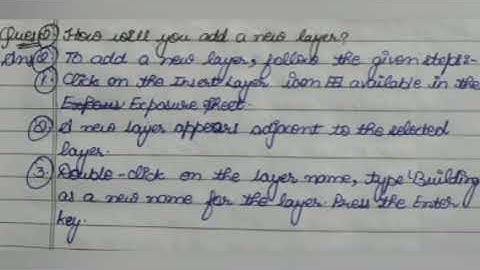 Ques② How will you add a new layer?
Ans② To add a new layer, follow the given steps:-
① Click on the Insert Layer icon ⊞ available in the
Exposure Sheet.
② A new layer appears adjacent to the selected
layer.
③ Double-click on the layer name, type 'Building
as a new name for the layer. Press the Enter
key.